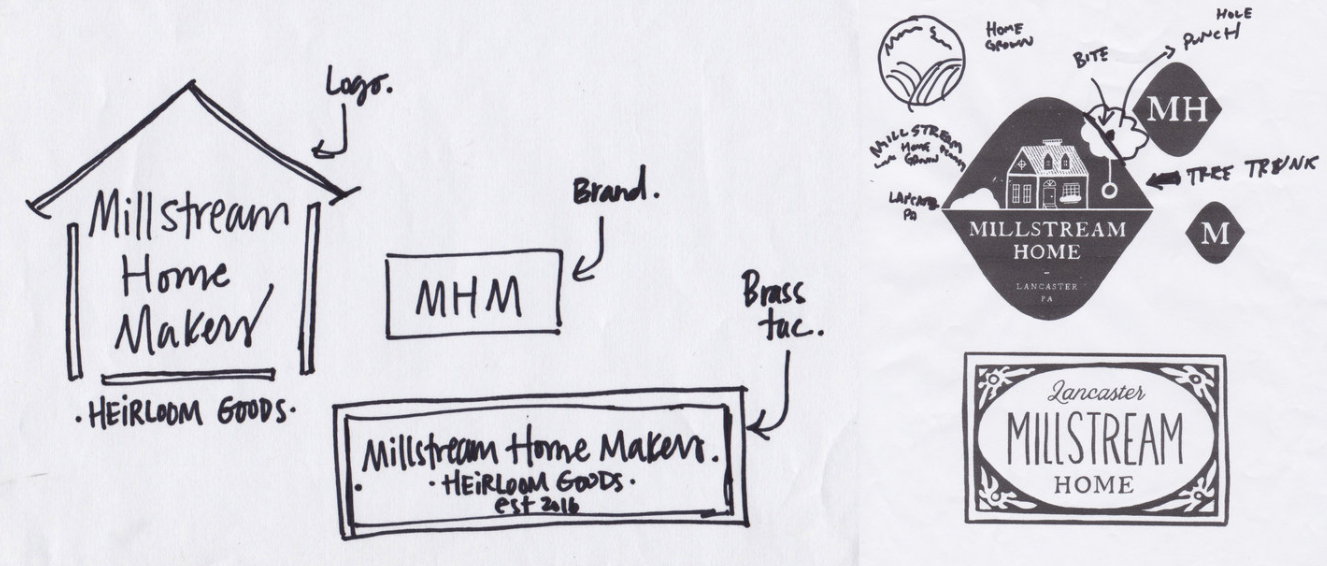 Logo.
Millstream
Home
Makers
·HEIRLOOM GOODS·
Brand.
MHM
Brass
tac.
Millstream Home Makers.
·HEIRLOOM GOODS·
est 2016
HOME
GROWN
BITE
HOLE
PUNCH
MH
MILLSTREAM
HOME
GROWN
LANCASTER
PA
TREE TRUNK
M
MILLSTREAM
HOME
–
LANCASTER
PA
Lancaster
MILLSTREAM
HOME